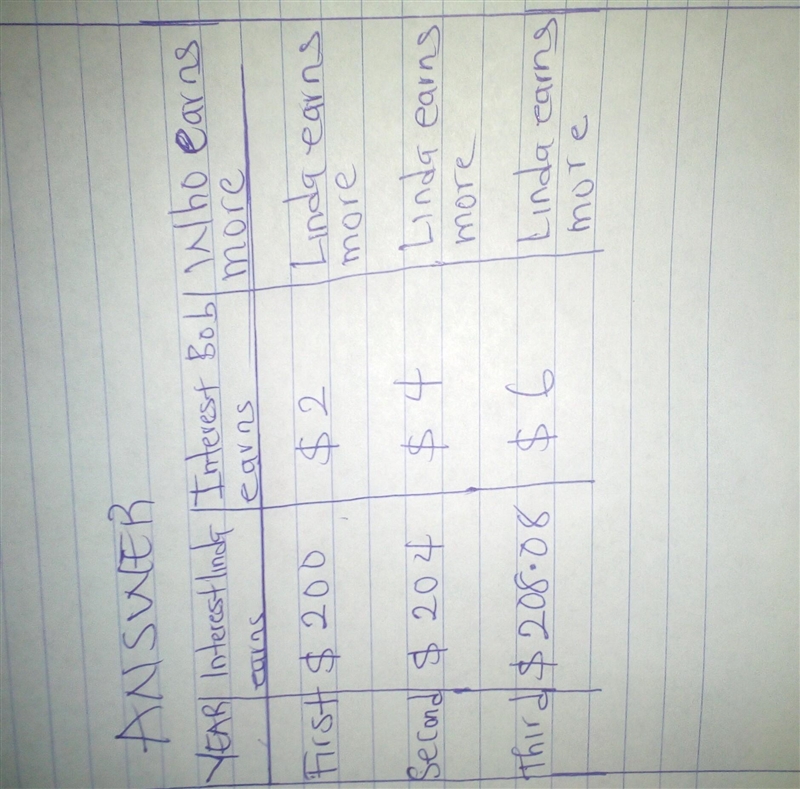 ANSWER
YEAR Interest linda earns Interest Bob earns Who earns more
First $200 $2 Linda earns more
Second $204 $4 Linda earns more
Third $208.08 $6 Linda earns more